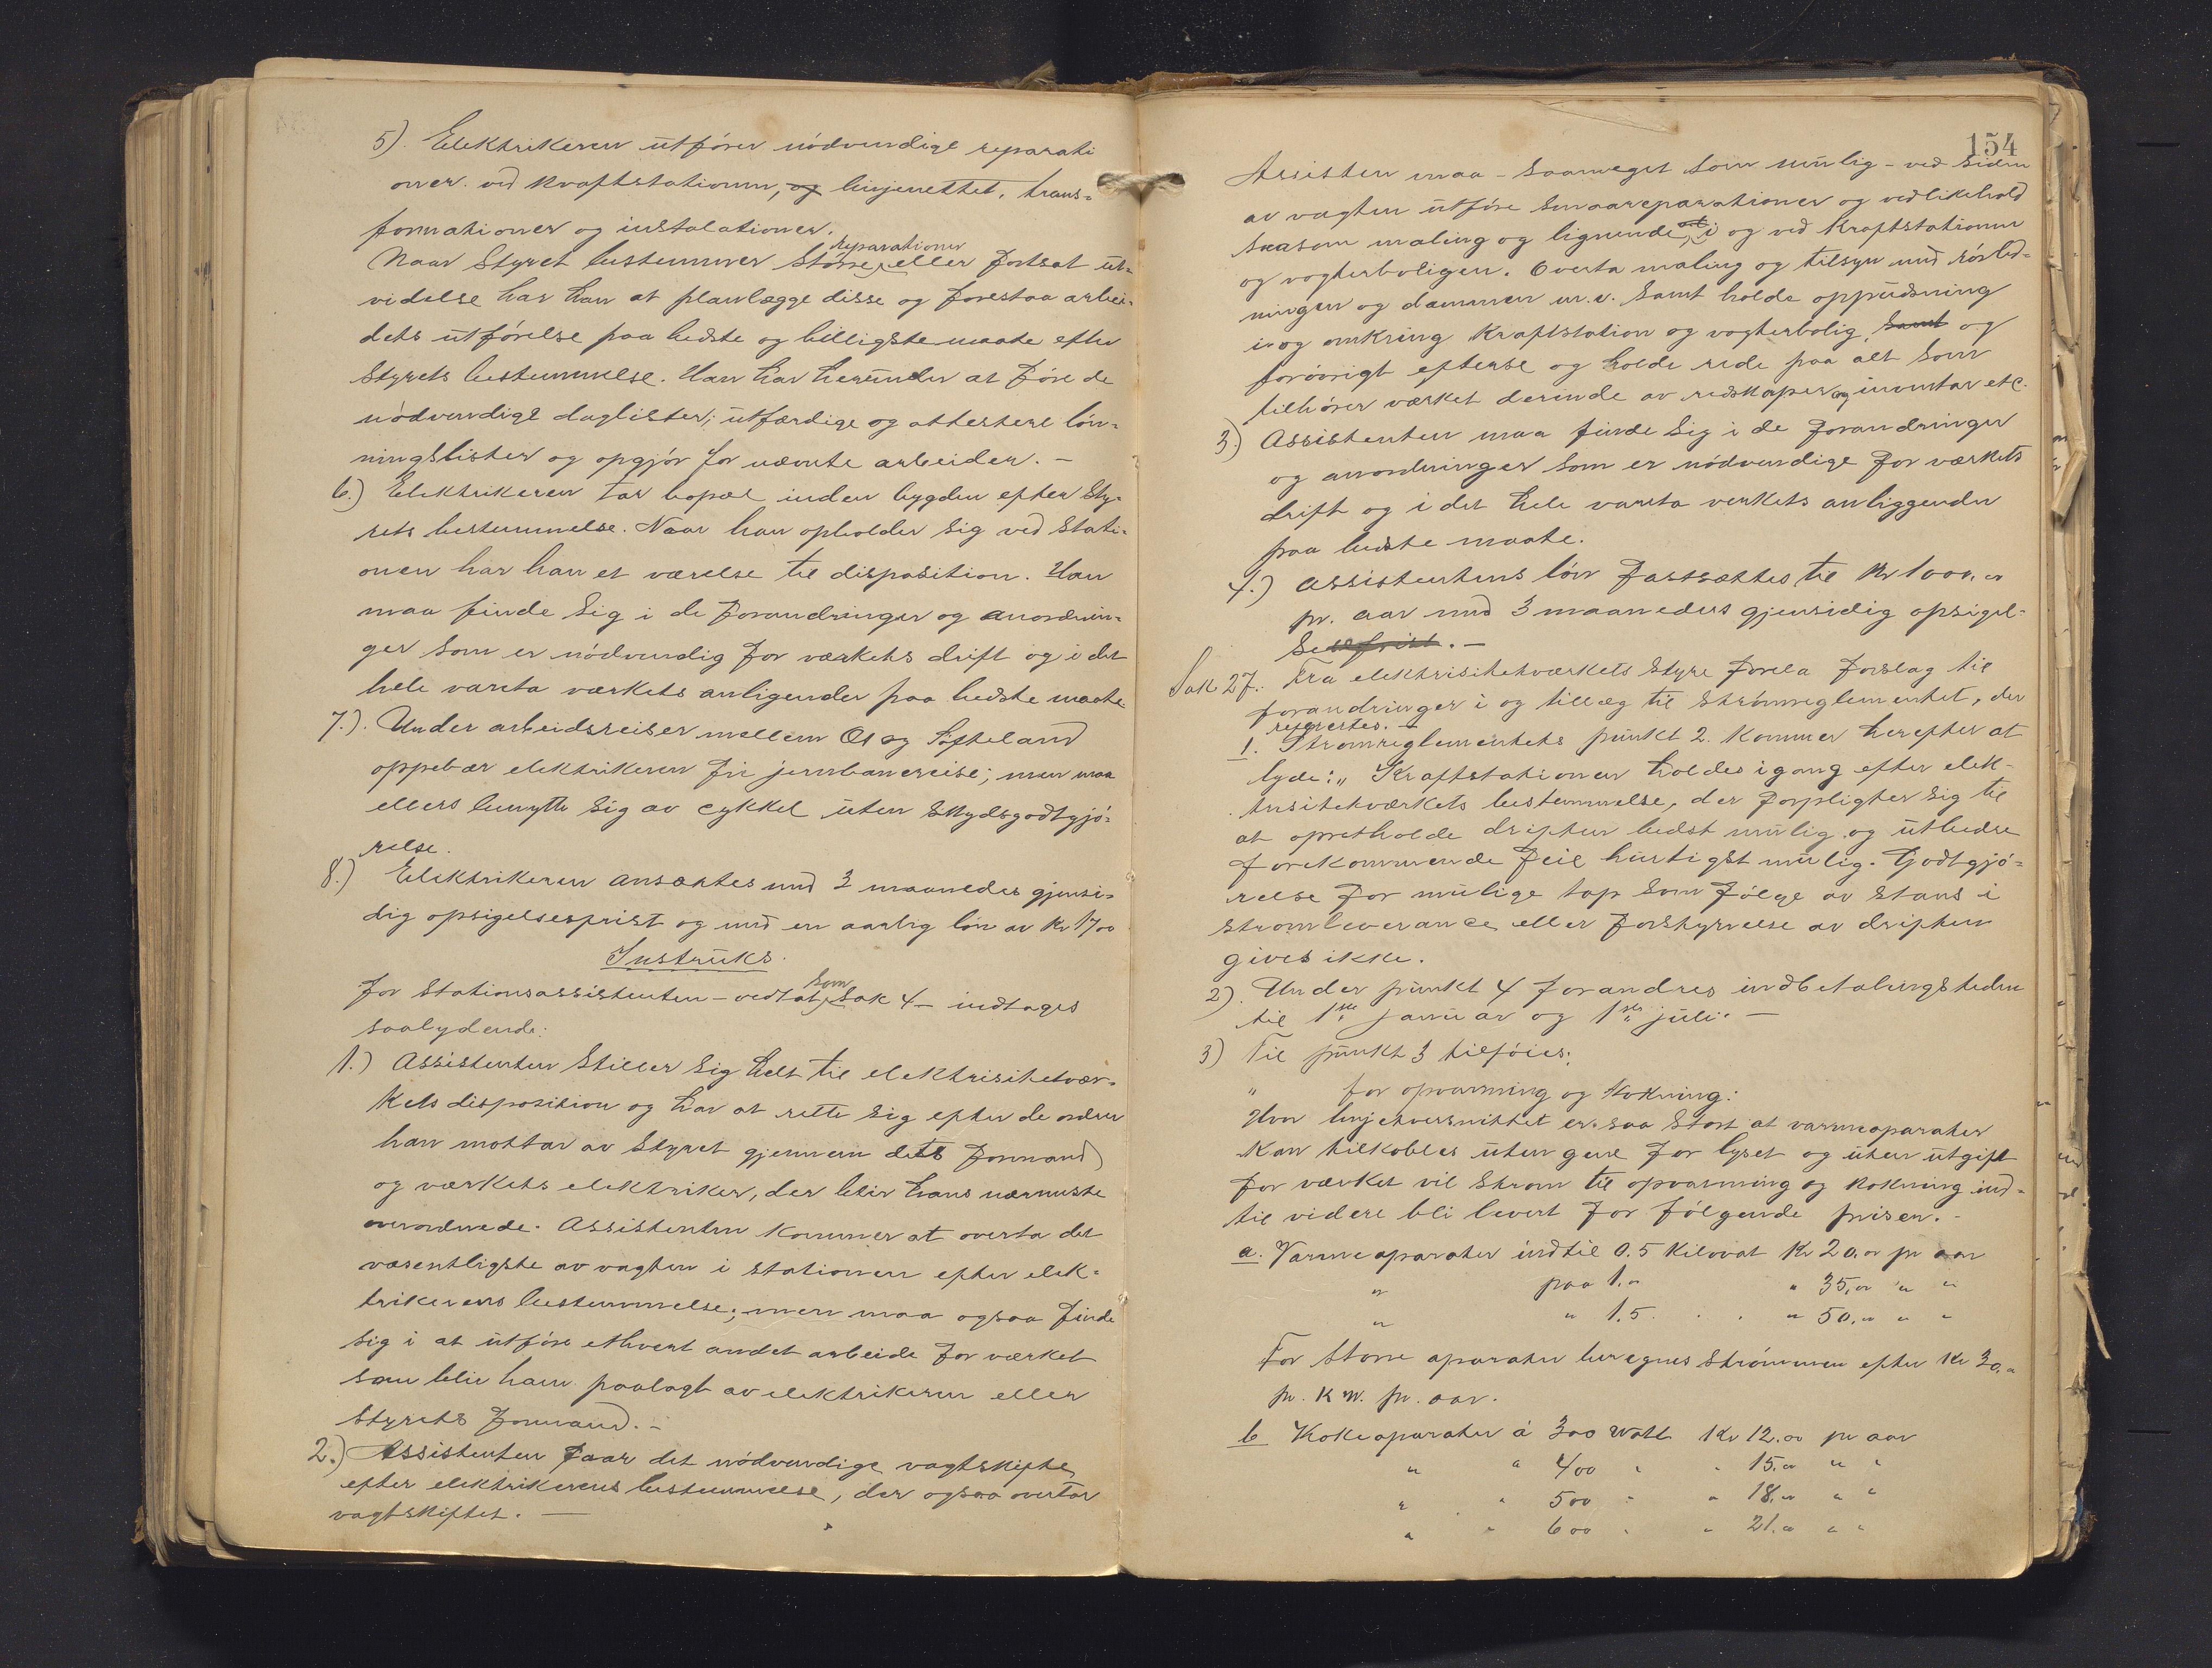 5). Elektrikeren utfører nødvendige reparati
oner ved kraftstationen, og linjenettet, trans-
formationer og instalationer.
reparationer
Naar Styret bestemmer større eller fortsat ut-
videlse har han at planlægge disse og forestaa arbei-
dets utførelse paa bedste og billigste maate efter
Styrets bestemmelse. Han har herunder at føre de
nødvendige daglister; utfærdige og attestere løn-
ningslister og opgjør for nævnte arbeider. —
6.) Elektrikeren tar bopæl inden bygden efter Sty-
rets bestemmelse. Naar han opholder sig ved Stati-
onen har han et værelse til disposition. Han
maa finde sig i de forandringer og anordnin-
ger som er nødvendig for værkets drift og i det
hele vareta værkets anligender paa bedste maate
7.). Under arbeidsreiser mellem Os og Søfteland
oppebær elektrikeren fri jernbanereise; men maa
ellers benytte sig av cykkel uten Skydsgodtgjø-
relse.
8.) Elektrikeren ansættes med 3 maaneders gjensi-
dig opsigelsesfrist og med en aarlig løn av Kr 1700
Instruks.
som
for Stationsassistenten – vedtat Sak 4 – indtages
saalydende:
1.) Assistenten Stiller sig helt til elektrisitetvær-
kets disposition og har at rette sig efter de ordrer
han mottar av Styret gjennem dets formand
og værkets elektriker, der blir hans nærmeste
overordnede. Assistenten kommer at overta det
væsentligste av vagten i stationen efter elek-
trikerens bestemmelse; men maa ogsaa finde
sig i at utføre ethvert andet arbeide for værket
som blir ham paalagt av elektrikeren eller
Styrets formand. –
2.) Assistenten faar det nødvendige vagtskifte
efter elektrikerens bestemmelse, der ogsaa overtar
vagtskiftet. —
154
Assisten maa – saameget som mulig – ved siden
av vagten utføre smaareparationer og vedlikehold
saasom maling og lignende, at i og ved Kraftstationen
og vogterboligen. Overta maling og tilsyn med rørled-
ningen og dammen m.v. samt holde oppudsning
i og omkring Kraftstation og vogterbolig, samt og
forøvrigt efterse og holde rede paa alt som
tilhører værket derinde av redskaper og inventar etc.
3.) Assistenten maa finde sig i de forandringer
og anordninger som er nødvendige for værkets
drift og i det hele vareta verkets anliggender
paa bedste maate.
4.) Assistentens løn fastsættes til Kr 1000,00
pr. aar med 3 maaneders gjensidig opsigel-
se. –
Sak 27. Fra elektrisitetværkets Styre forela forslag til
forandringer i og tillæg til strømreglementet, der
referertes. –
1. Strømreglementets punkt 2. Kommer herefter at
lyde: „Kraftstationen holdes igang efter elek-
trisitetværkets bestemmelse, der forpligter sig til
at opretholde driften bedst mulig og utbedre
forekommende feil hurtigst mulig. Godtgjø-
relse for mulige tap som følge av stans i
strømleverance eller forstyrrelse av driften
gives ikke.
2). Under punkt 4 forandres indbetalingstiden
til 1ste januar og 1ste juli. —
3) Til punkt 3 tilføies:
" for opvarmning og Kokning:
Hvor linjetversnittet er saa stort at varmeaparater
kan tilkobles uten gene for lyset og uten utgift
for værket vil strøm til opvarmning og kokning ind-
til videre bli levert for følgende priser. –
a. Varmeaparater indtil 0.5 Kilovat Kr 20.00 pr aar
" paa 1.0 " 35,00 " "
" " 1.5 . . " 50,00 " "
For større aparater beregnes strømmen efter Kr 30,00
pr. K W. pr. aar.
b Kokeaparater á 300 Watt Kr 12.00 pr aar
" á 400 " " 15,00 " "
" " 500 " " 18,00 " "
" " 600 " " 21,00 " "